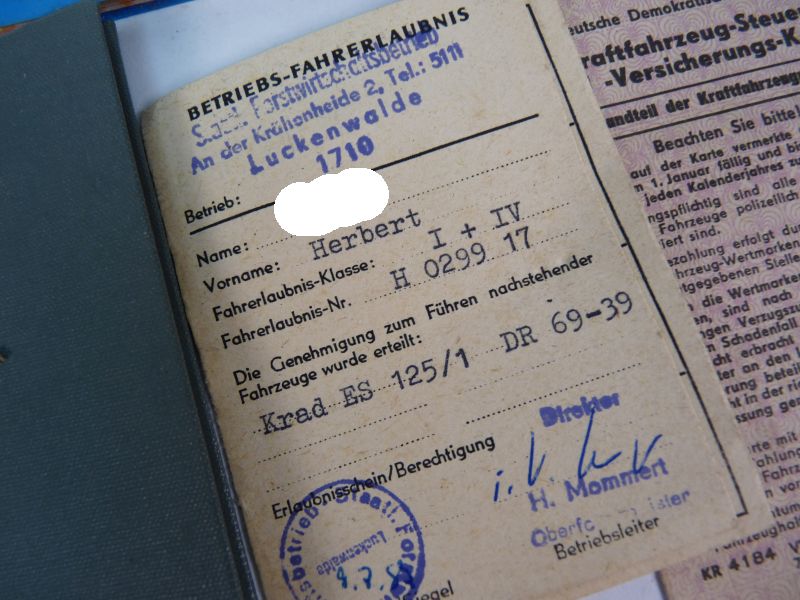 BETRIEBS-FAHRERLAUBNIS
Staatl. Forstwirtschaftsbetrieb
An der Krähenheide 2, Tel.: 5111
Luckenwalde
1710
Betrieb:
Name:
Vorname: Herbert
Fahrerlaubnis-Klasse: I + IV
Fahrerlaubnis-Nr. H 0299 17
Die Genehmigung zum Führen nachstehender
Fahrzeuge wurde erteilt:
Krad ES 125/1 DR 69-39
Erlaubnisschein/Berechtigung
Direktor
i.V.
H. Mommert
Betriebsleiter
Staatl. For
Luckenwalde
eutsche Demokratis
raftfahrzeug-Steue
-Versicherungs-K
andteil der Kraftfahrzeug
Beachten Sie bitte
auf der Karte vermerkte
m 1. Januar fällig und bi
jeden Kalenderjahres zu
ngspflichtig sind alle
Fahrzeuge polizeilich
iert sind.
ezahlung erfolgt du
hrzeug-Wertmarken
tgegebenen Stelle
die Wertmarke
en, sind nach
ngen Verzugszu
Schadenfall
cht erbracht
ter an den
rung beteil
ht in der ri
ssung ge
KR 4184